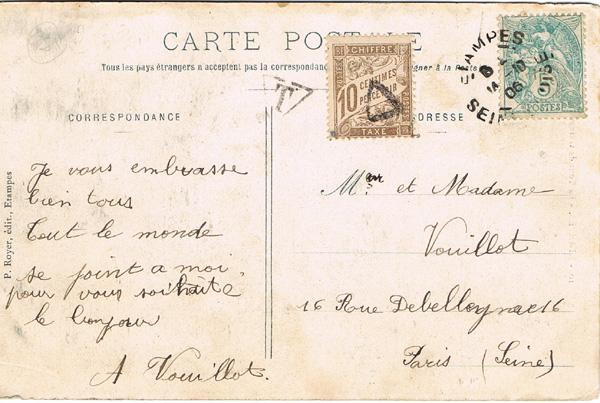 CARTE POSTALE
Tous les pays étrangers n acceptent pas la correspondance
CORRESPONDANCE
ADRESSE
CHIFFRE
10 CENTIMES
A PERCEVOIR
TAXE
T
5
POSTES
ETAMPES
06
SEINE
P. Royer, édit., Etampes
Je vous embrasse
bien tous
Tout le monde
se joint a moi,
pour vous souhaite
le bonjour
A Vouillot.
Mr et Madame
Vouillot
16 Rue 16
Paris (Seine)